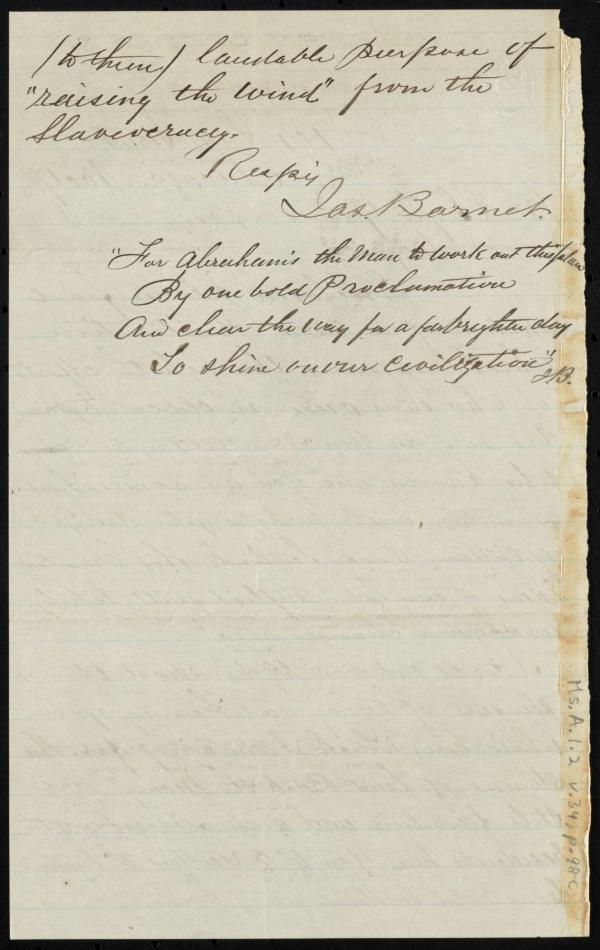 (to them) laudable purpose of
"raising the wind" from the
Slaveocracy.
Resp'y
Jas. Barnet.
"For Abraham's the Man to work out this plan
By one bold Proclamation
And clear the way for a far brighter day
To shine on our Civilization"
J.B.
Ms. A. 1. 2 v. 34, p. 98c